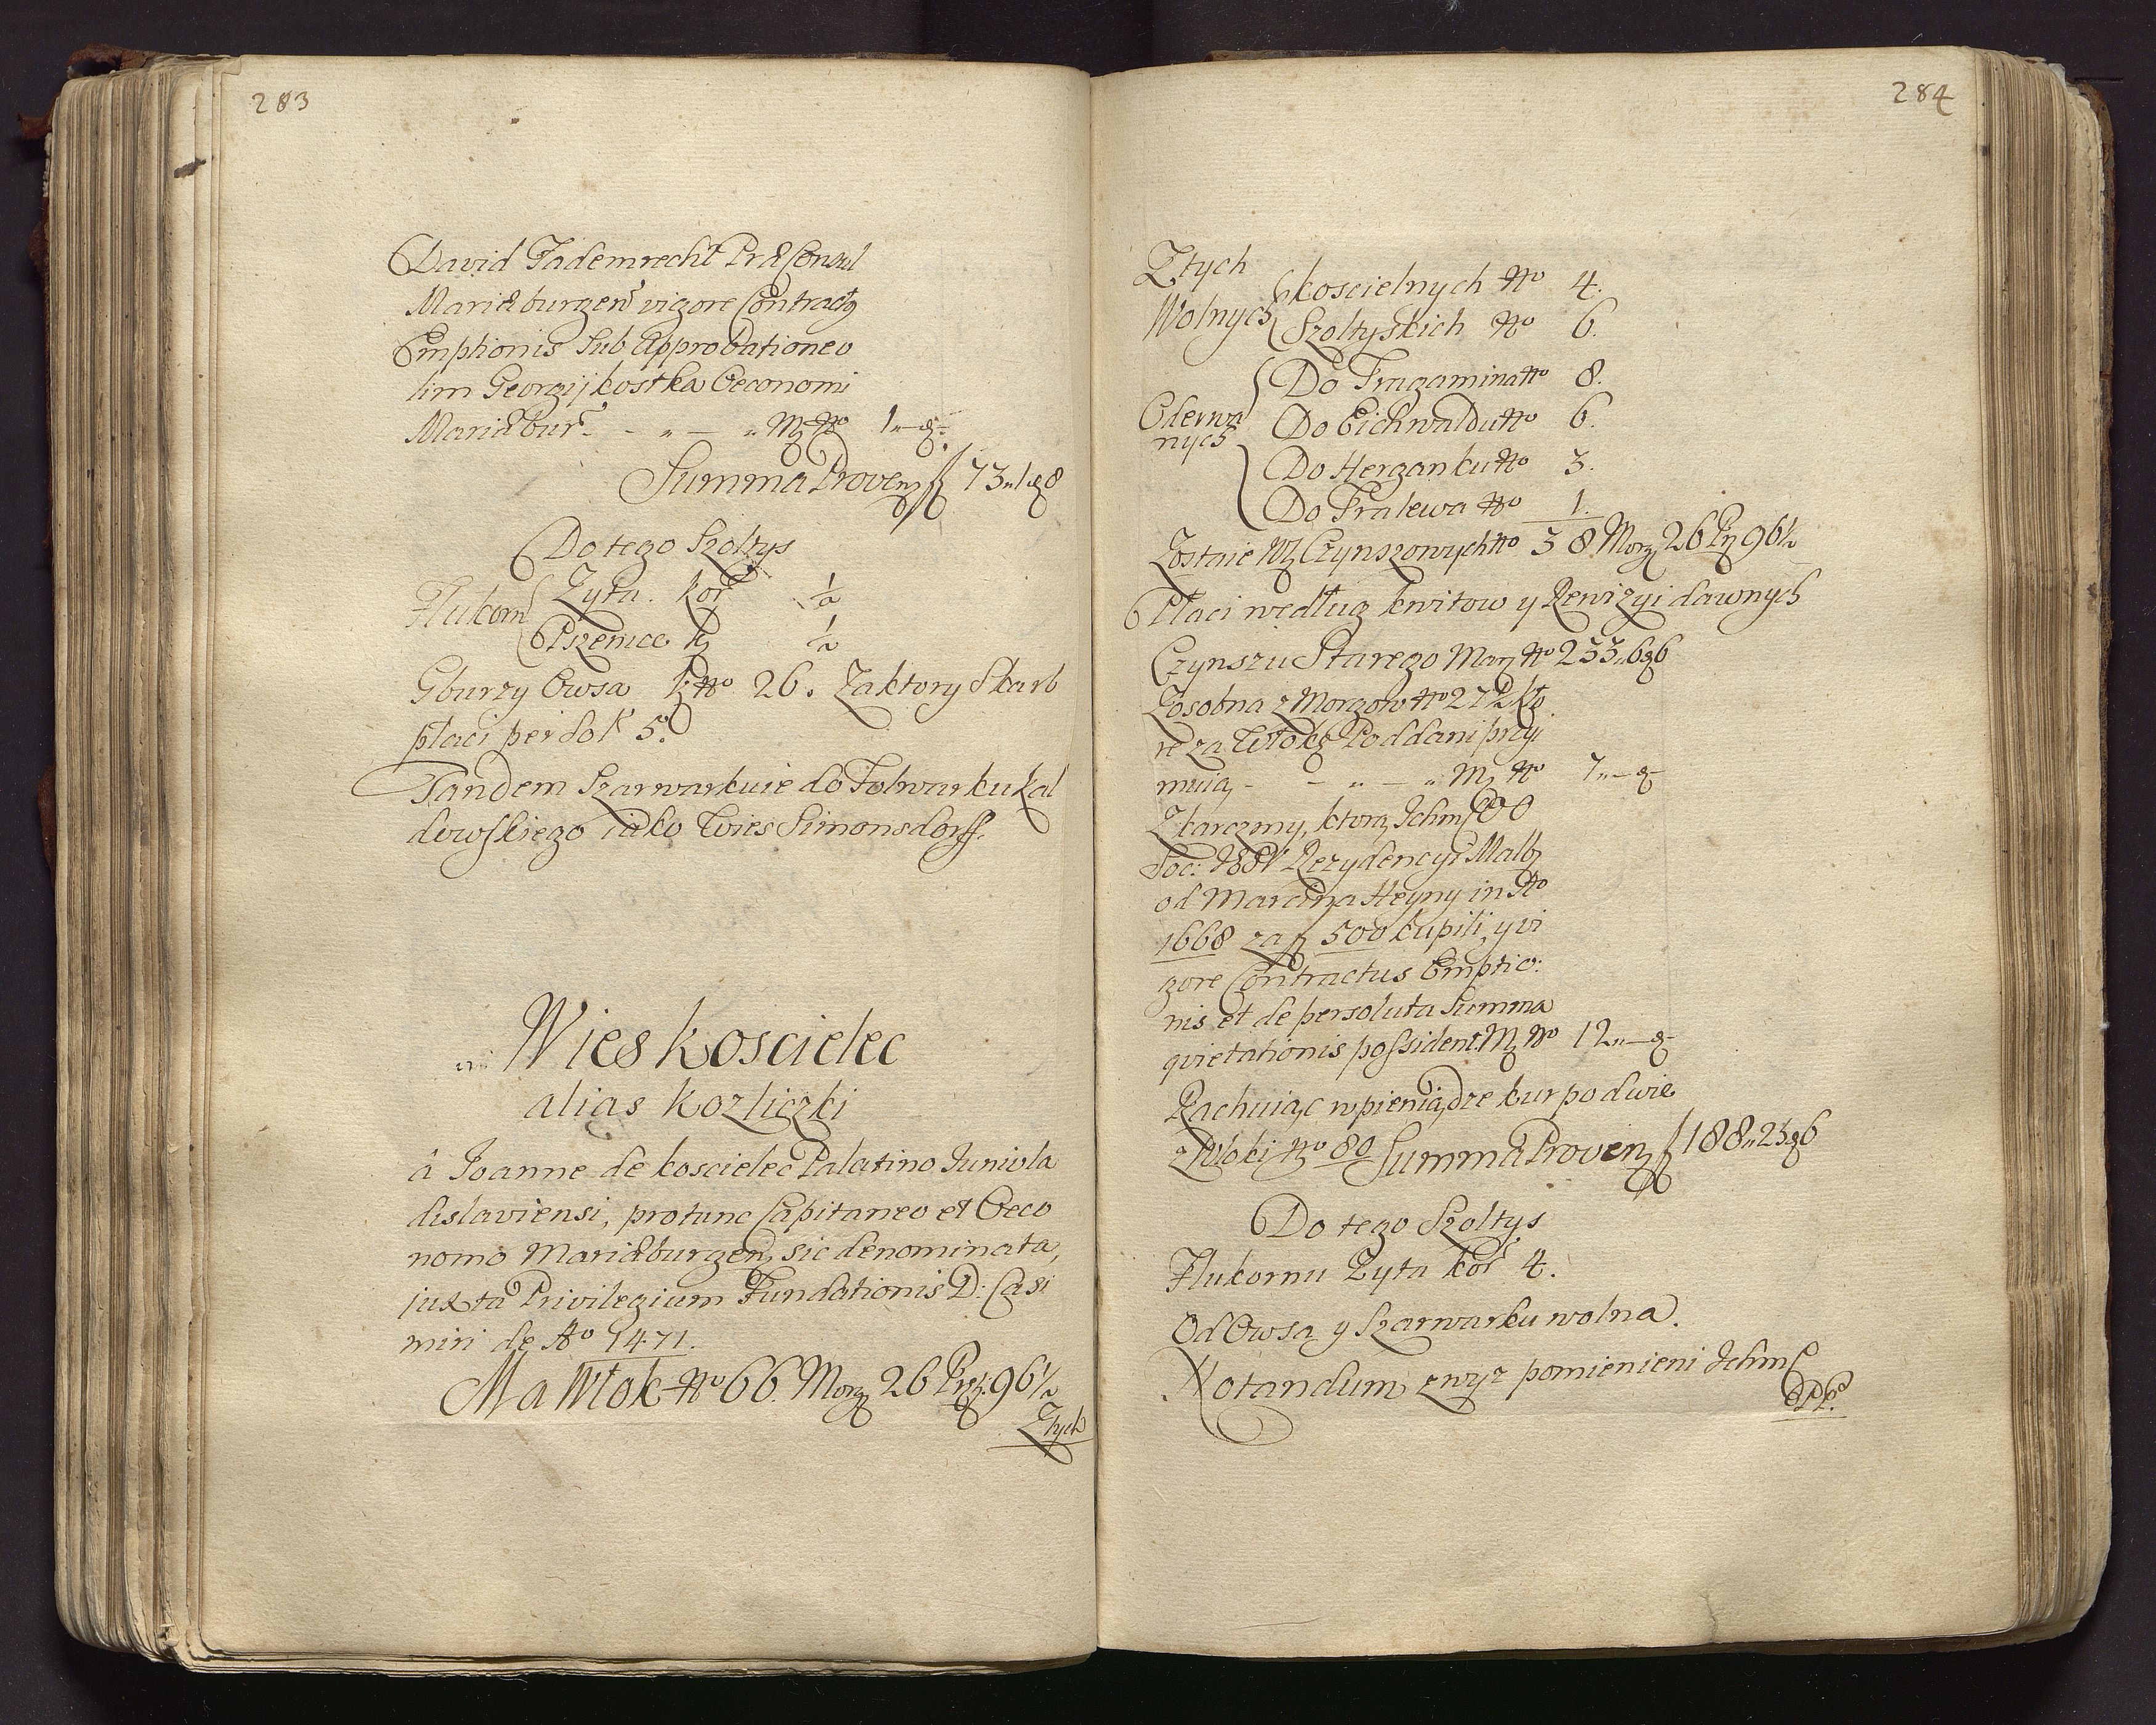 283
David Fademrecht PræConsul
Mariæburgen vigore Contractg
Emptionis Sub Approbatione
lim Georgij kostka Oeconomi
Mariæbur Mg No 1
Summa Proven fl 73 „ 1 g 8
Do tego Szoltys
Flukorn Zyta. kor ½
Pszenice k ½
Gburzy Owsa k. No 26. Za ktory Skarb
płaci per Sol 5.
Tandem Szarwarkuie do Folwarku kal
dowskiego iako Wies Simonsdorff.
Wies koscielec
alias kozliczki
â Joanne de koscielec Palatino Junivla
dislaviensi, protunc Capitaneo et Oeco
nomo Mariæburgen, sic denominata,
juxta Privilegium Fundationis D: Casi
miri de Ao 1471.
Ma Włok No 66. Morg 26 Prę: 96 ½
Ztych
284
Ztych
Wolnych koscielnych No 4.
Szoltyskich No 6.
Do Tragamina No 8.
Oderwa
nych Do Eichwaldu No 6.
Do Herganku No 3.
Do Fralewa No 1.
Zostaie Wł Czynszowych No 38 Morg 26 Pr 96 ½
Płaci według kwitow y Rewizyi dawnych
Czynszu Starego Marg No 233 „ 6 g 6
Zosobna z Morgow No 27 ½ kto
re za Włokę Poddani przy
muią Mg No 7
Zkarczmy, ktorą Ichm PP
Soc: Rezydencyi Malb
od Marcina Heyny in Ao
1668 za fl 500 kupili, y vi
gore Contractus Emptio:
nis et de persoluta Summa
qvietationis possident. Mg No 12
Rachuiąc w pieniądze kur po dwie
z Włoki No 80 Summa Proven fl 188 „ 23 g 6
Do tego Szoltys
Flukornu Zyta kor 4.
Od Owsa y Szarwarku wolna.
Notandum zwyz pomienieni Ichm
PP.